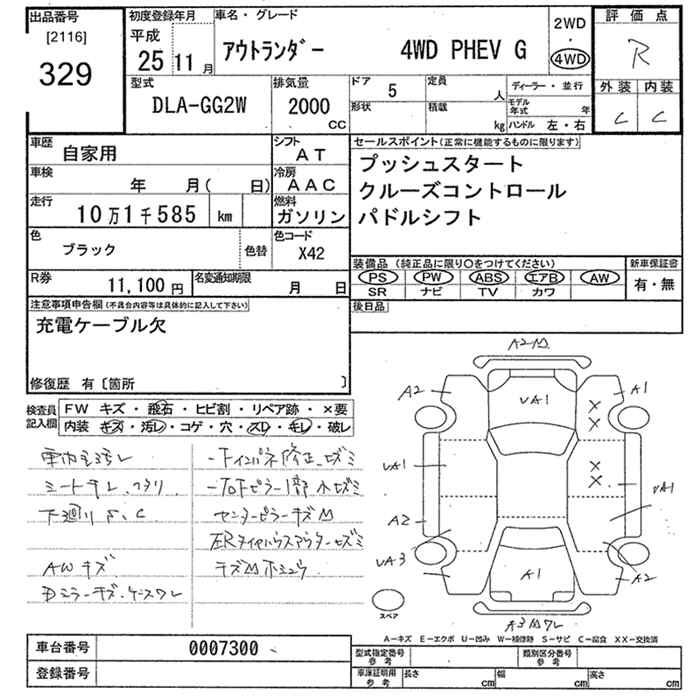 出品番号 初度登録年月 車名・グレード 2WD 評価点
[2116] 平成 ・
329 25年 11月 アウトランダー 4WD PHEV G 4WD R
型式 排気量 ドア 5 定員 人 ディーラー・並行 外装 内装
DLA-GG2W 2000 CC 形状 積載 kg モデル年式 年 C C
ハンドル 左・右
車歴 自家用 シフト AT セールスポイント(正常に機能するものに限ります)
車検 年 月( 日) 冷房 AAC プッシュスタート
走行 10万1千585 km 燃料 ガソリン クルーズコントロール
パドルシフト
色 ブラック 色替 色コード X42
装備品(純正品に限り○をつけてください) 新車保証書
R券 11,100円 名変通知期限 月 日 PS PW ABS エアB AW 有・無
SR ナビ TV カワ
注意事項申告欄(不具合内容等は具体的に記入して下さい) 後日品
充電ケーブル欠
修復歴 有〔箇所 〕
A2 A1
UA1
検査員記入欄 FW キズ・飛石・ヒビ割・リペア跡・×要
内装 キズ・汚レ・コゲ・穴・スレ・キレ・破レ
× ×
シートキレ、
UA1 × × UA1
下廻り S、C センターピラーキズ
A2
AWキズ UA3 A1 A2
スペア
A-キズ E-エクボ U-凹み W-補修跡 S-サビ C-腐食 XX-交換済
車台番号 0007300 型式指定番号 参考 類別区分番号 参考
登録番号 車庫証明用 参考 長さ cm 幅 cm 高さ cm